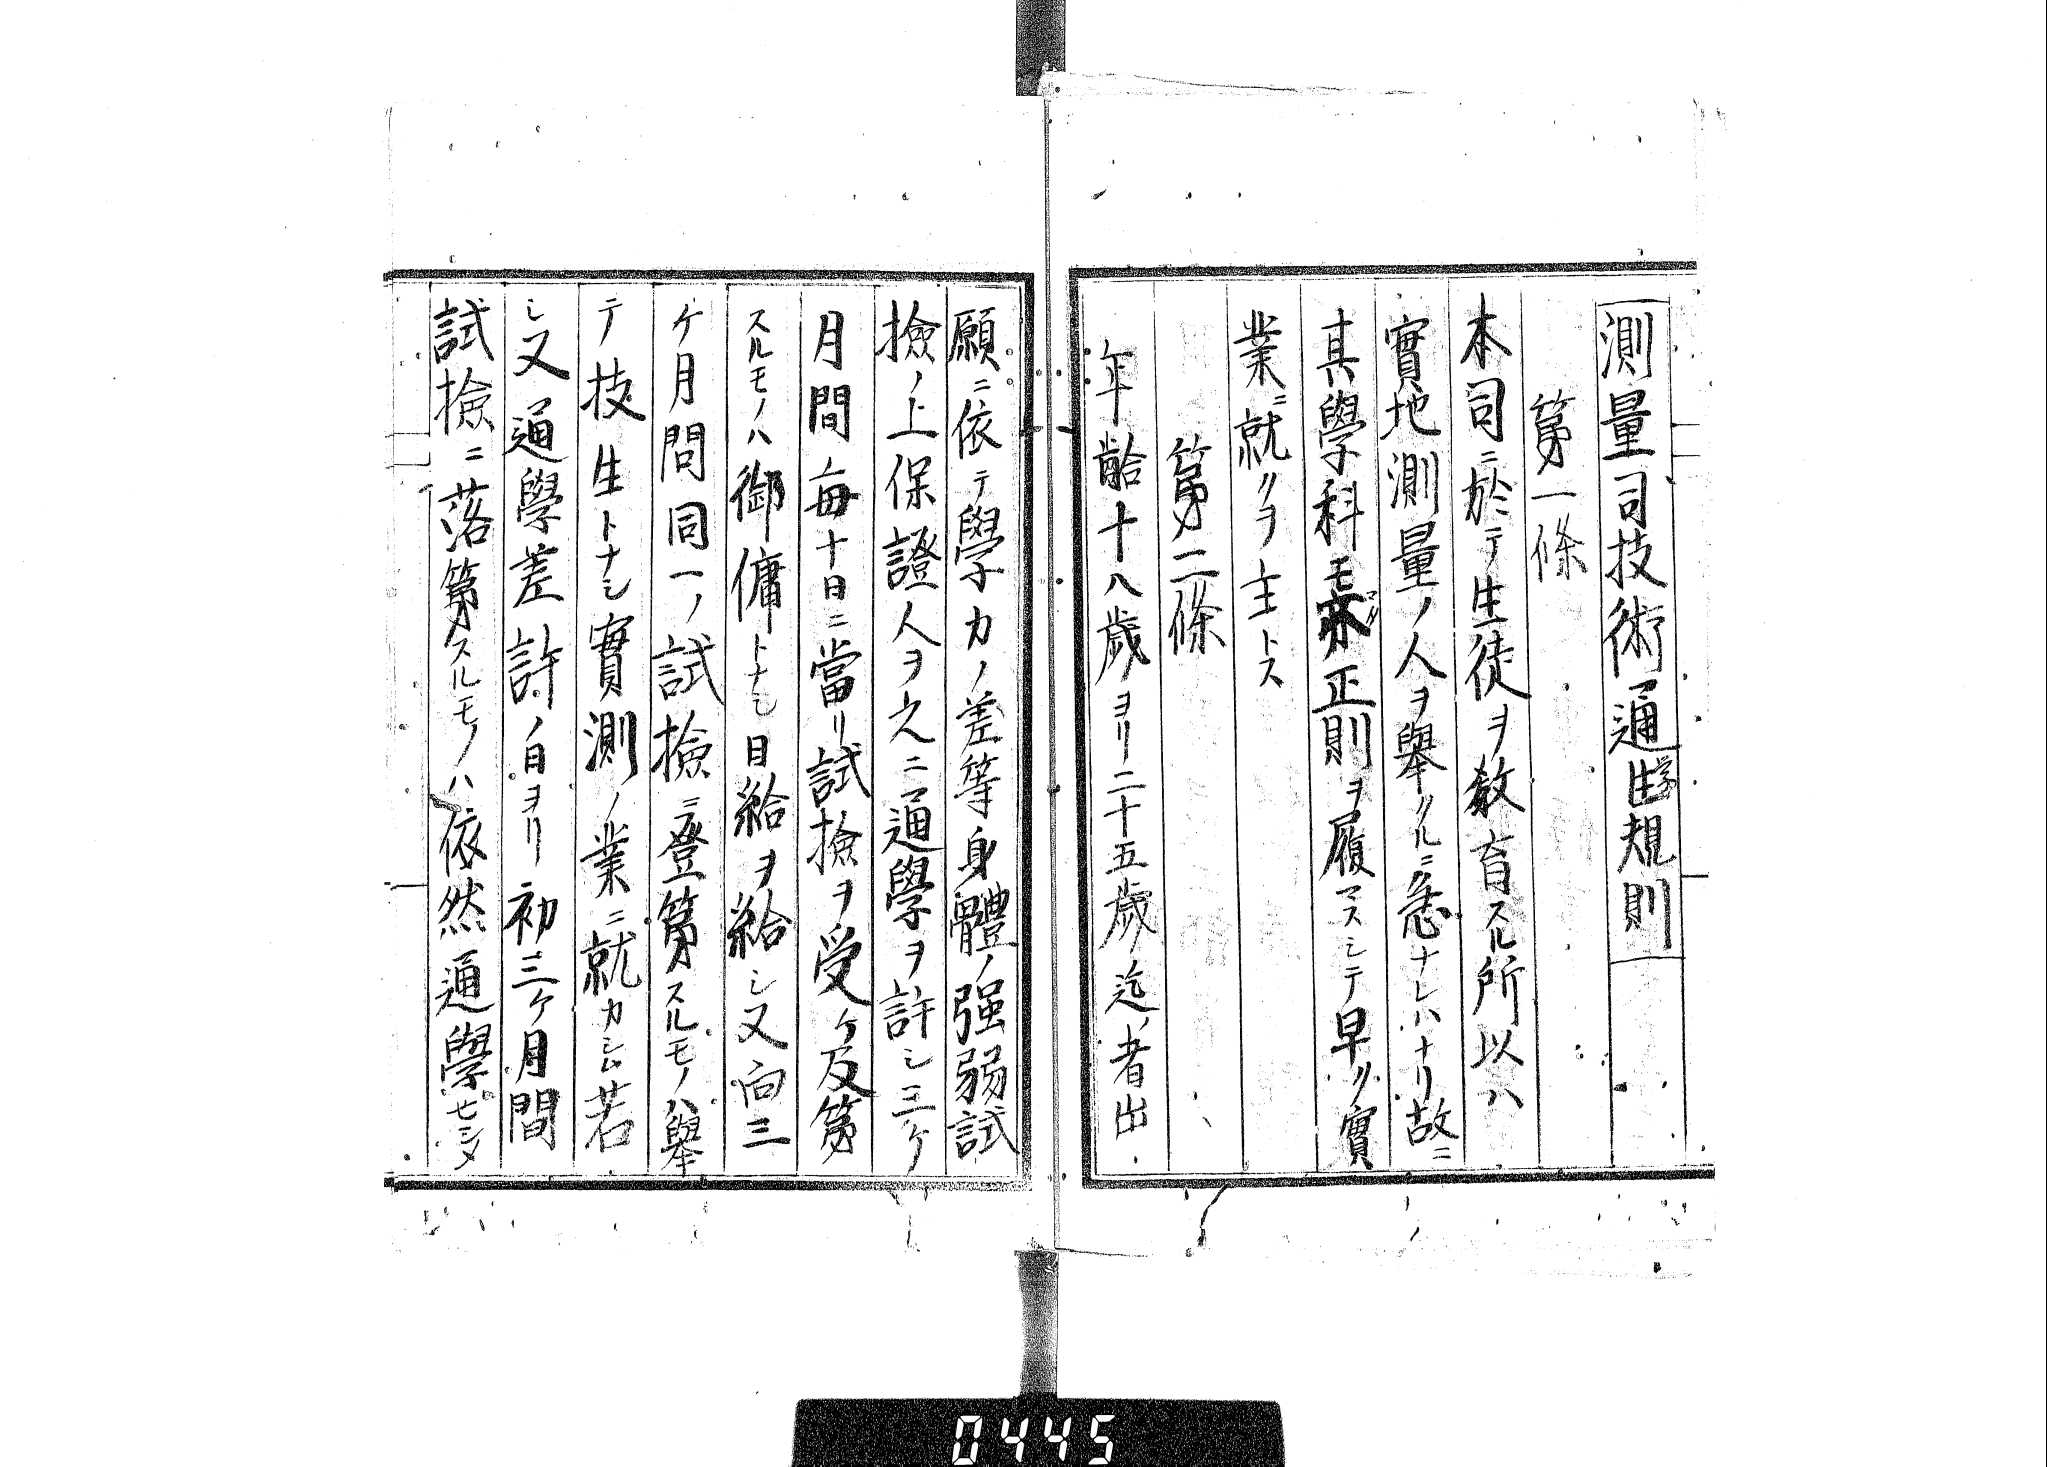 測量司技術通学生規則
第一條
本司ニ於テ生徒ヲ敎育スル所以ハ
實地測量ノ人ヲ擧クルニ急ナレハナリ故ニ
其學科モ亦正則ヲ履マスシテ早ク實
業ニ就クヲ主トス
第二條
年齡十八歲ヨリ二十五歲迄ノ者出
願ニ依テ學力ノ差等身體ノ强弱試
撿ノ上保證人ヲ以テ通學ヲ許シ三ケ
月間每十日ニ當リ試撿ヲ受ケ及第
スルモノハ御傭トナシ日給ヲ給シ又向三
ケ月間同一ノ試撿ニ登第スルモノハ擧
テ技生トナシ實測ノ業ニ就カシム若
シ又通學差許ノ日ヨリ初三ケ月間
試撿ニ落第スルモノハ依然通學セシメ
0445